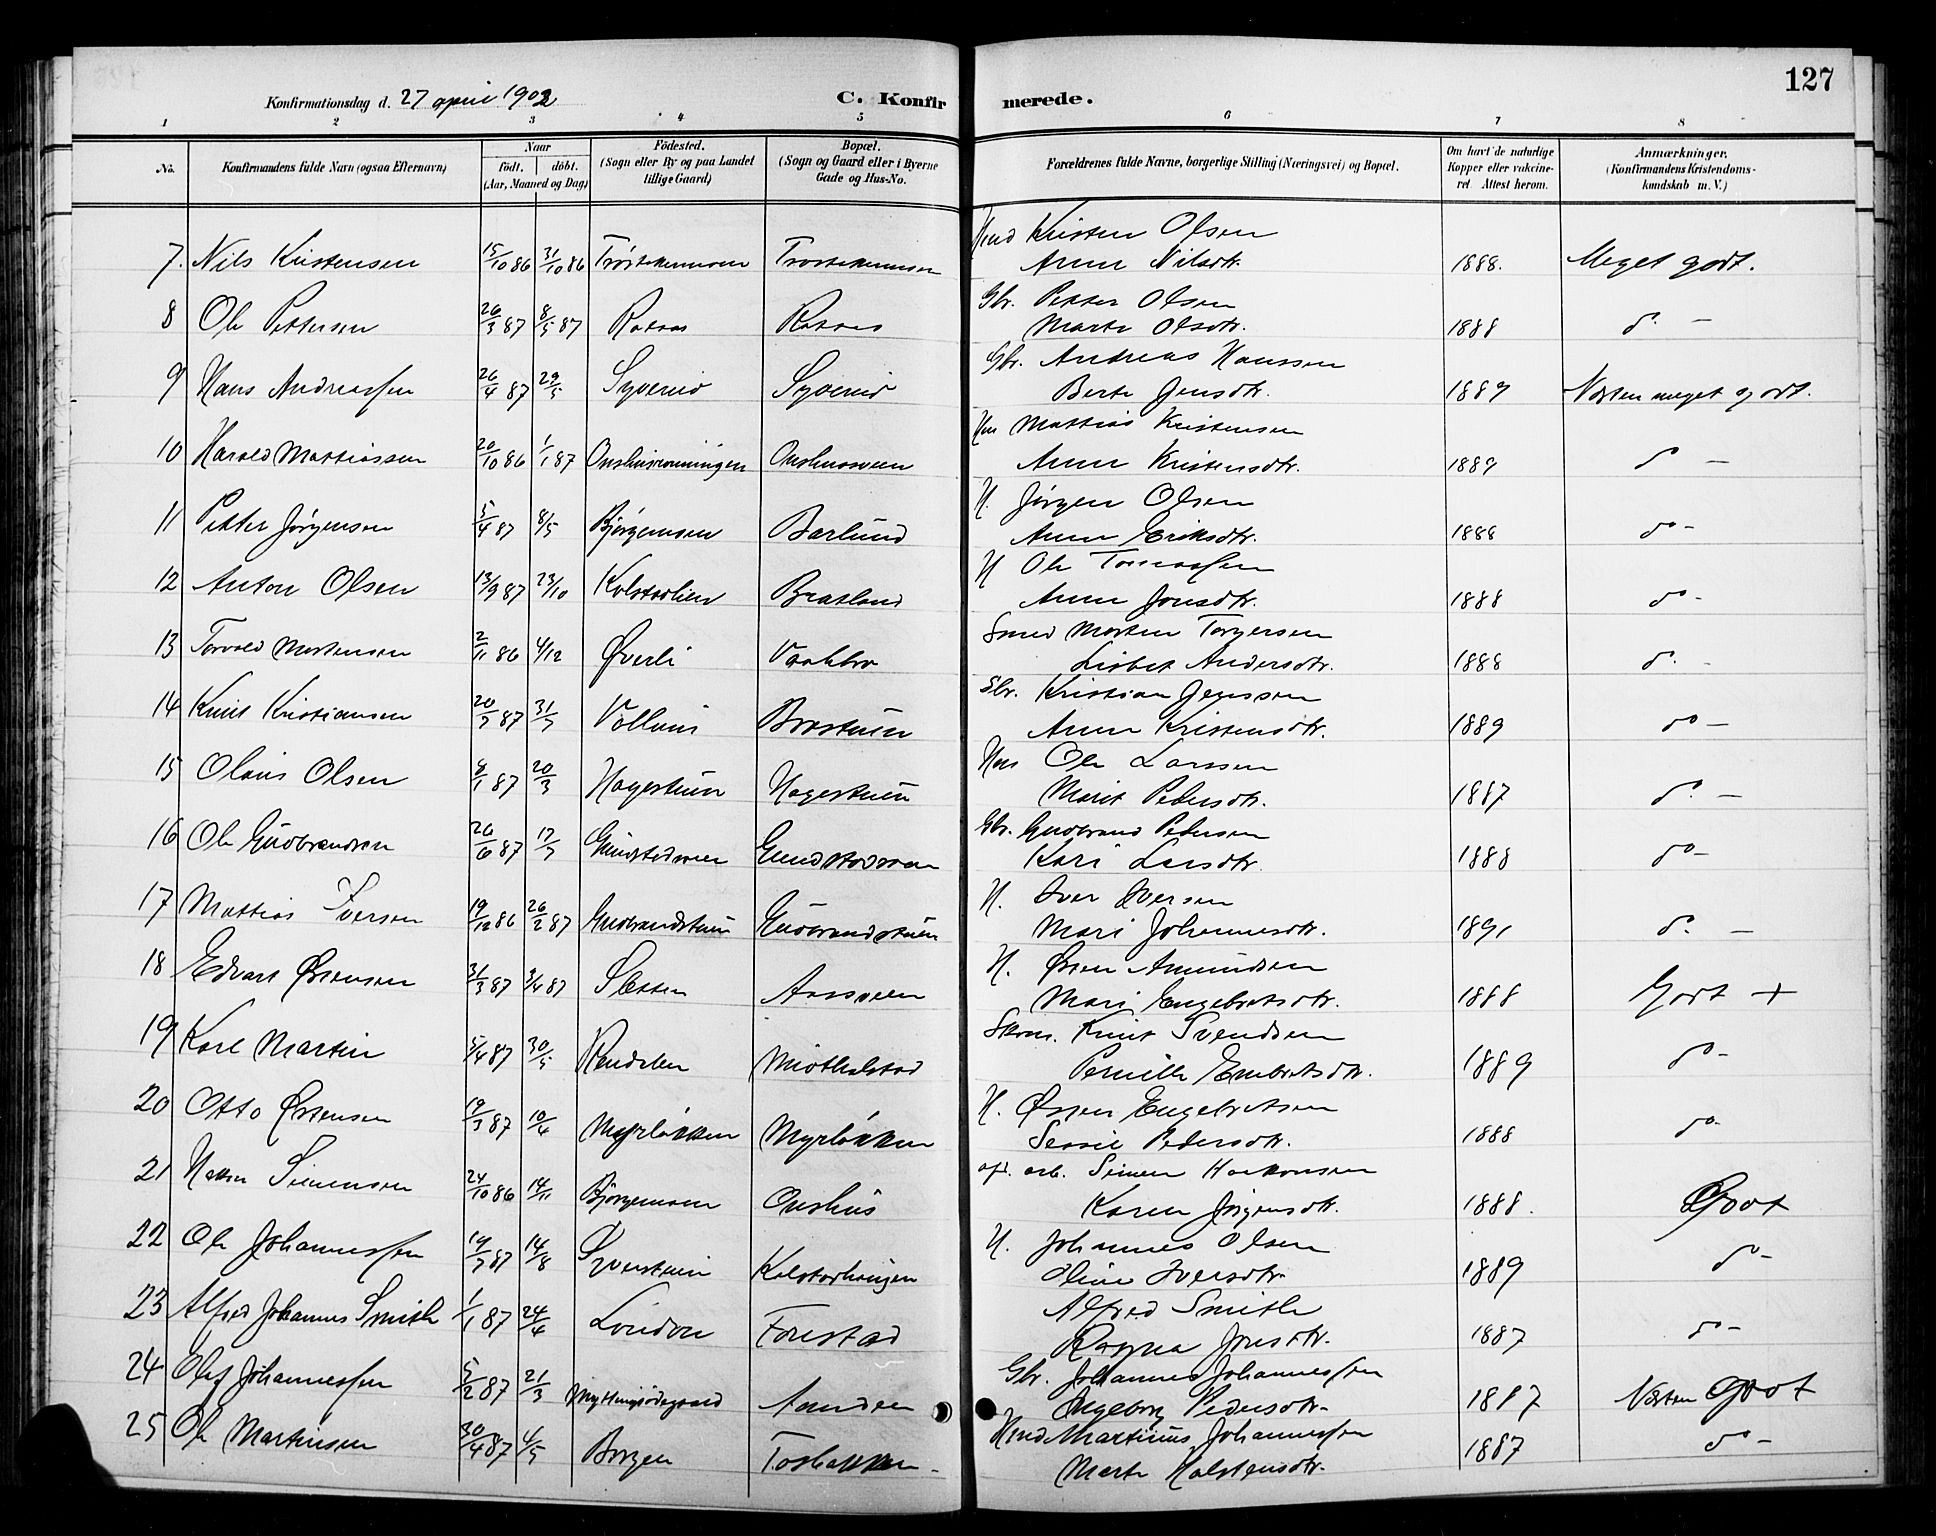 127
Konfirmationsdag d. 27 april 1902 C. Konfirmerede.
1 2 3 4 5 6 7 8
No. Konfirmandens fulde Navn (ogsaa Efternavn) Naar født. døbt. (Aar, Maaned og Dag) Fødested. (Sogn eller By og paa Landet tillige Gaard) Bopæl. (Sogn og Gaard eller i Byerne Gade og Hus-No. Forældrenes fulde Navne, borgerlige Stilling (Næringsvei) og Bopæl. Om havt de naturlige Kopper eller vakcineret. Attest herom. Anmærkninger. (Konfirmandens Kristendomskundskab m. V.)
Kristen Olsen
7. Nils Kristensen 15/10 86 31/10 86 Anne Nilsdtr. 1888. Meget godt.
Gbr. Petter Olsen
8 Ole Pettersen 26/3 87 8/5 87 Marte Olsdtr. 1888 do -
Gbr. Andreas Hanssen
9 Hans Andreassen 26/4 87 29/5 Syverud Syverud Berte Jensdtr. 1889 Næsten meget godt.
Mattias Kristensen
10 Harald Mattiassen 20/10 86 1/1 87 Onshusveen Anne Kristensdtr. 1889 do -
H. Jørgen Olsen
11 Petter Jørgensen 5/4 87 8/5 Bjørgemoen Barlund Anne Eriksdtr. 1888 do -
H Ole Tomassen
12 Anton Olsen 13/9 87 23/10 Kolstadlien Bratland Anne Jonsdtr. 1888 do -
Smed Morten Torgersen
13 Torvald Mortensen 2/11 86 4/12 Øverli Lisbet Andersdtr. 1888 do -
Gbr. Kristian Jenssen
14 Knut Kristiansen 20/7 87 31/7 Anne Kristensdtr. 1889 do -
Ole Larssen
15 Olaus Olsen 8/1 87 20/3 Hagestuen Hagestuen Marit Pedersdtr. 1887 do -
Gbr. Gudbrand Pedersen
16 Ole Gudbrandsen 26/6 87 17/7 Kari Larsdtr. 1888 do -
H. Iver Iversen
17 Mattias Iversen 19/12 86 26/2 87 Gudbrandstuen Gudbrandstuen Mari Johannesdtr. 1891 do -
H. Østen Amundsen
18 Edvart Østensen 31/3 87 3/4 87 Sletten Aassveen Mari Engebretsdtr. 1888 Godt +
Knut Svendsen
19 Karl Martin 5/4 87 30/5 Pernille Embretsdtr. 1889 do -
H. Østen Engebretsen
20 Otto Østensen 19/3 87 10/4 Myrløkken Myrløkken Pedersdtr. 1888 do -
arb. Simen Haakonsen
21 Simensen 24/10 86 14/11 Bjørgemoen Onshus Karen Jørgensdtr. 1888. Godt
H. Johannes Olsen
22 Ole Johannessen 19/7 87 14/8 Syverstuen Kolstadhaugen Oline Iversdtr. 1889 do -
Alfred Smith
23 Alfred Johannes Smith 1/1 87 24/4 London Forestad Ragna Jonsdtr. 1887 do -
Gbr. Johannes Johannessen
24 Olaf Johannessen 5/2 87 21/3 Ingeborg Pedersdtr. 1887 Næsten Godt
Martinus Johannessen
25 Ole Martinsen 30/4 87 4/5 Borgen Marte Halstensdtr. 1887 do -